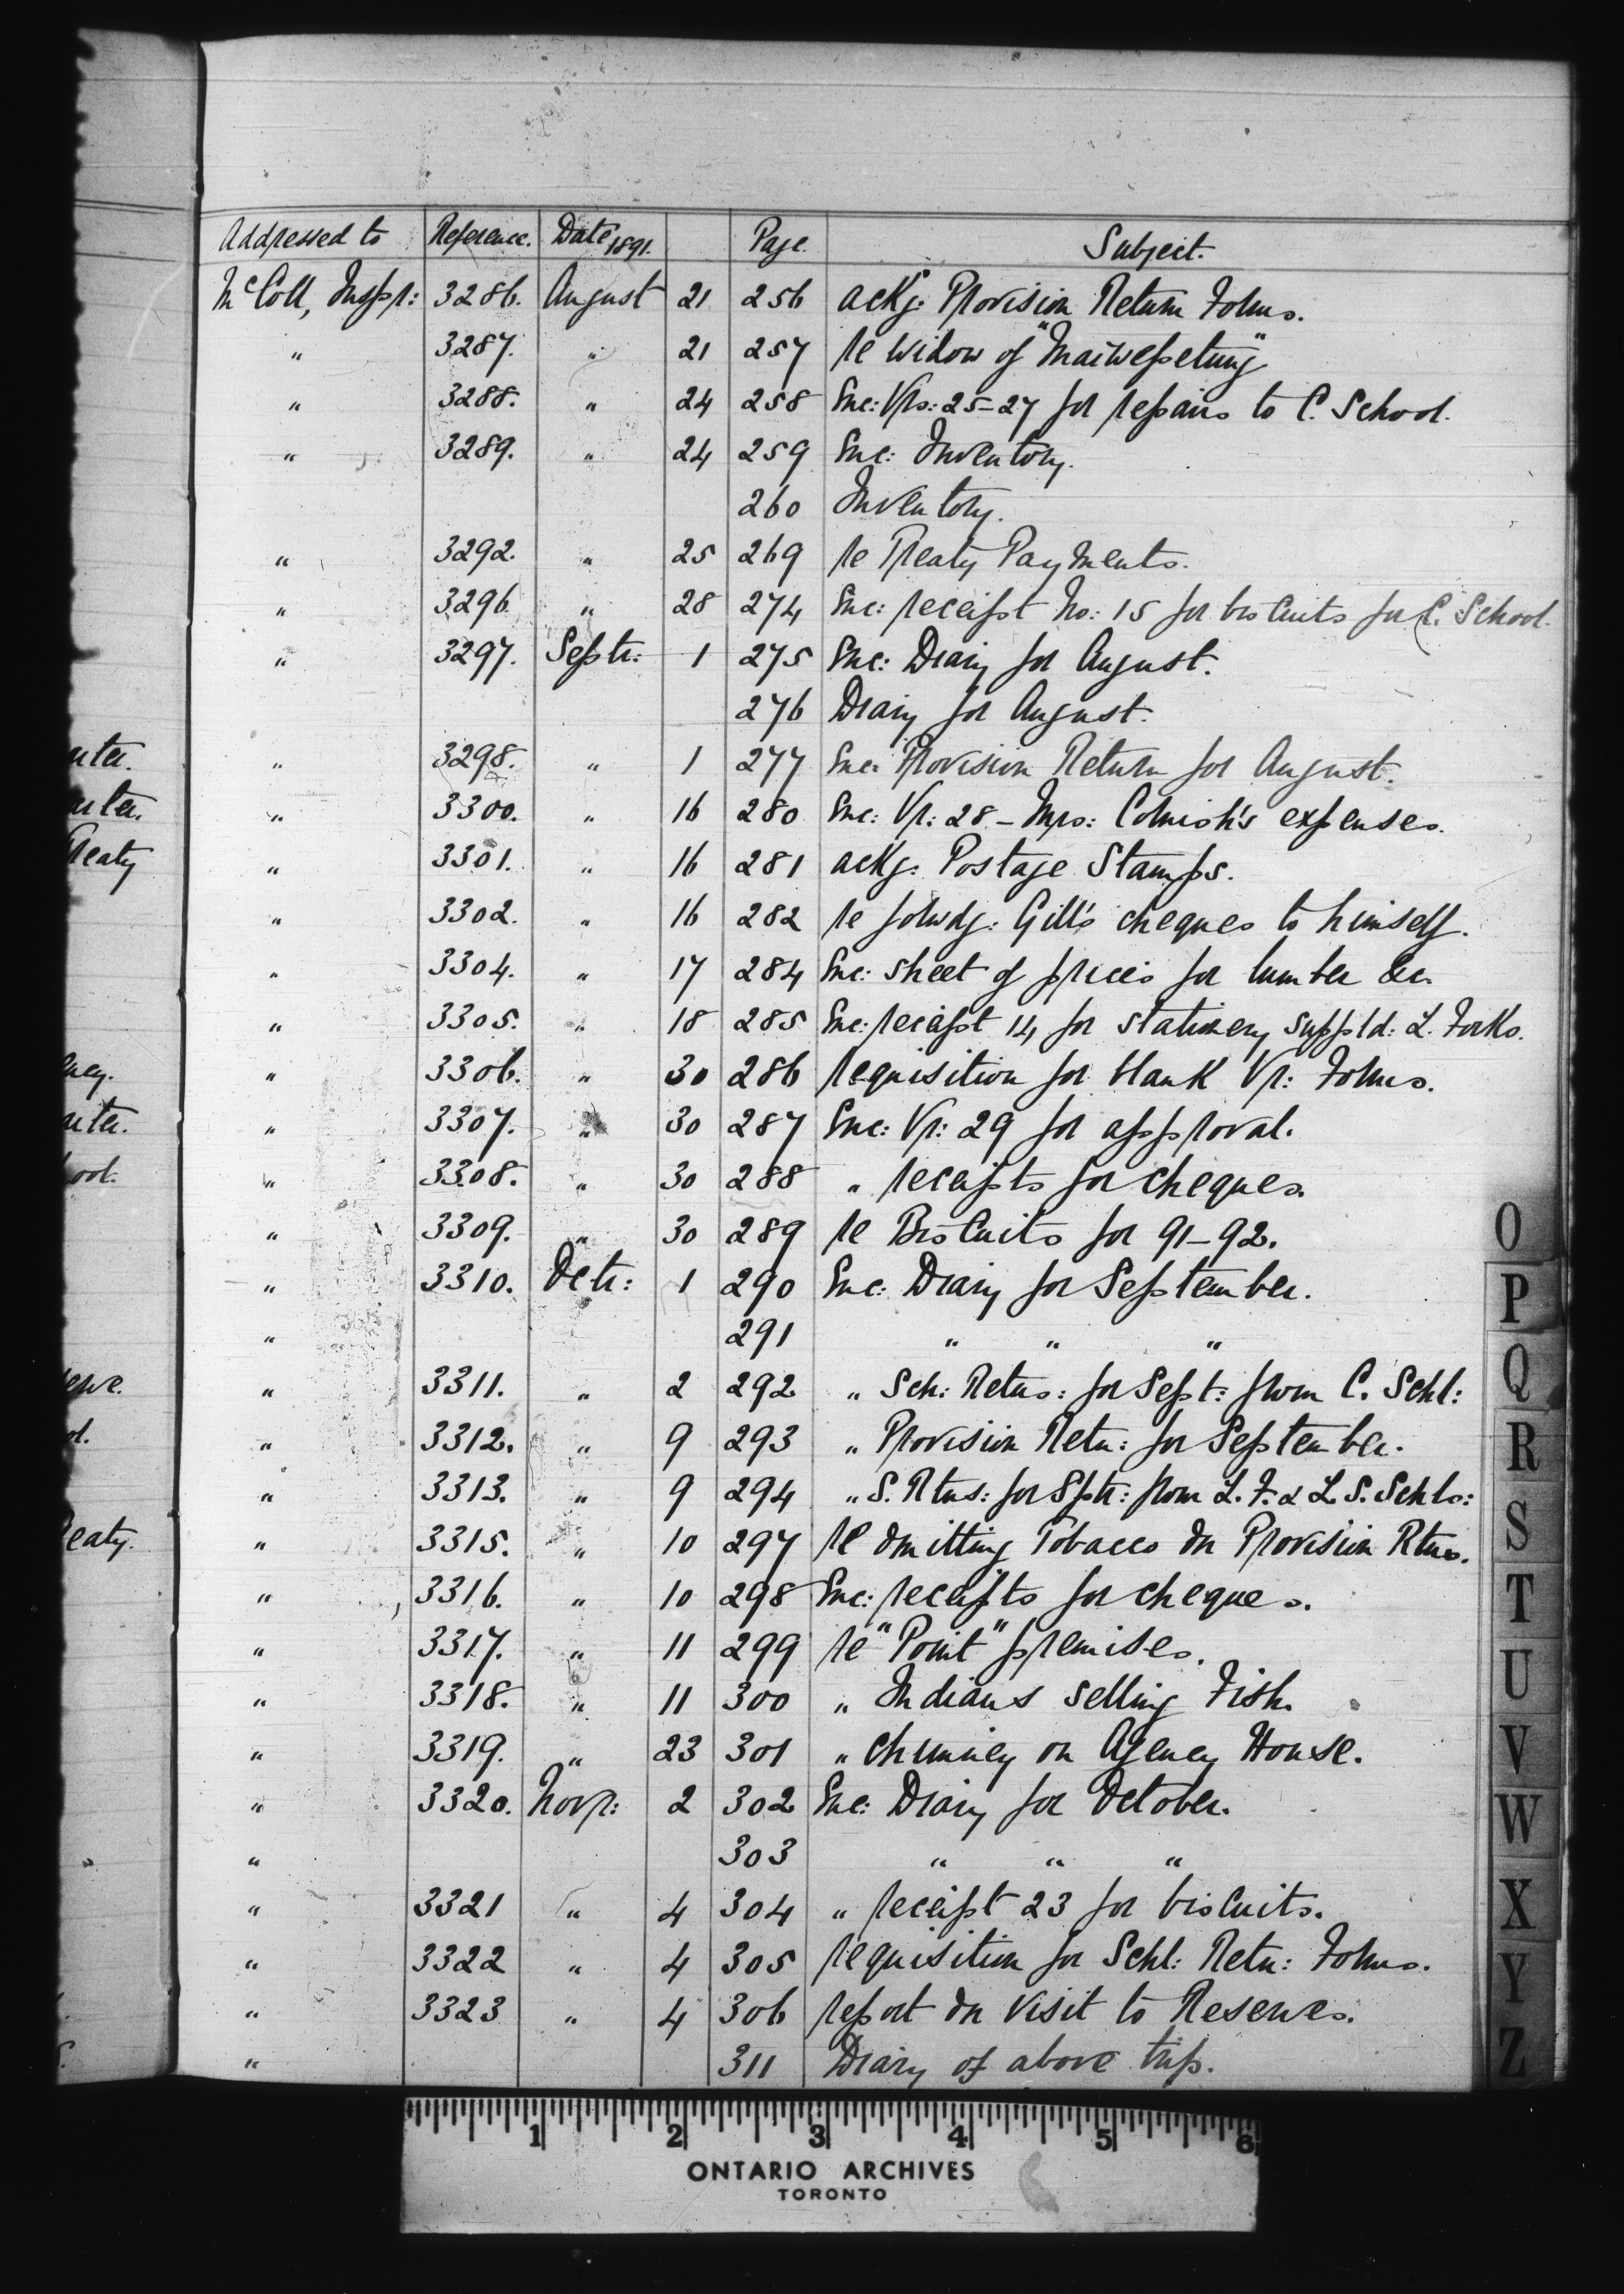 Addressed to Reference. Date 1891. Page. Subject.
McColl, Inspr: 3286. August 21 256 ackg. Provision Return Forms.
" 3287. " 21 257 re widow of
" 3288. " 24 258 Enc: Vrs: 25-27 for repairs to C. School.
" 3289. " 24 259 Enc: Inventory.
260 Inventory.
" 3292. " 25 269 re Treaty Payments.
" 3296. " 28 274 Enc: receipt No: 15 for biscuits for C. School.
" 3297. Septr: 1 275 Enc: Diary for August.
276 Diary for August.
" 3298. " 1 277 Enc: Provision Return for August.
" 3300. " 16 280 Enc: Vr: 28 - Mrs: Cornish's expenses.
" 3301. " 16 281 ackg: Postage Stamps.
" 3302. " 16 282 re forwdg: Gill's cheques to himself.
" 3304. " 17 284 Enc: sheet of prices for lumber &c.
" 3305. " 18 285 Enc: receipt 14 for stationery suppld: L. Forks.
" 3306. " 30 286 requisition for blank Vr: Forms.
" 3307. " 30 287 Enc: Vr: 29 for approval.
" 3308. " 30 288 " receipts for cheques.
" 3309. " 30 289 re Biscuits for 91-92.
" 3310. Octr: 1 290 Enc: Diary for September.
" 291 " " "
" 3311. " 2 292 " Sch: Retns: for Sept: from C. Schl:
" 3312. " 9 293 " Provision Retn: for September.
" 3313. " 9 294 " S. Rtns: for Sptr: from L. F. & L. S. Schls:
" 3315. " 10 297 re omitting Tobacco on Provision Rtns.
" 3316. " 10 298 Enc: receipts for cheques.
" 3317. " 11 299 re "Point" premises.
" 3318. " 11 300 " Indians selling Fish.
" 3319. " 23 301 " chimney on Agency House.
" 3320. Novr: 2 302 Enc: Diary for October.
" 303 " " "
" 3321 " 4 304 " receipt 23 for biscuits.
" 3322 " 4 305 requisition for Schl: Retn: Forms.
" 3323 " 4 306 report on visit to Reserves.
" 311 Diary of above trip.
O
P
Q
R
S
T
U
V
W
X
Y
Z
1 2 3 4 5 6
ONTARIO ARCHIVES
TORONTO